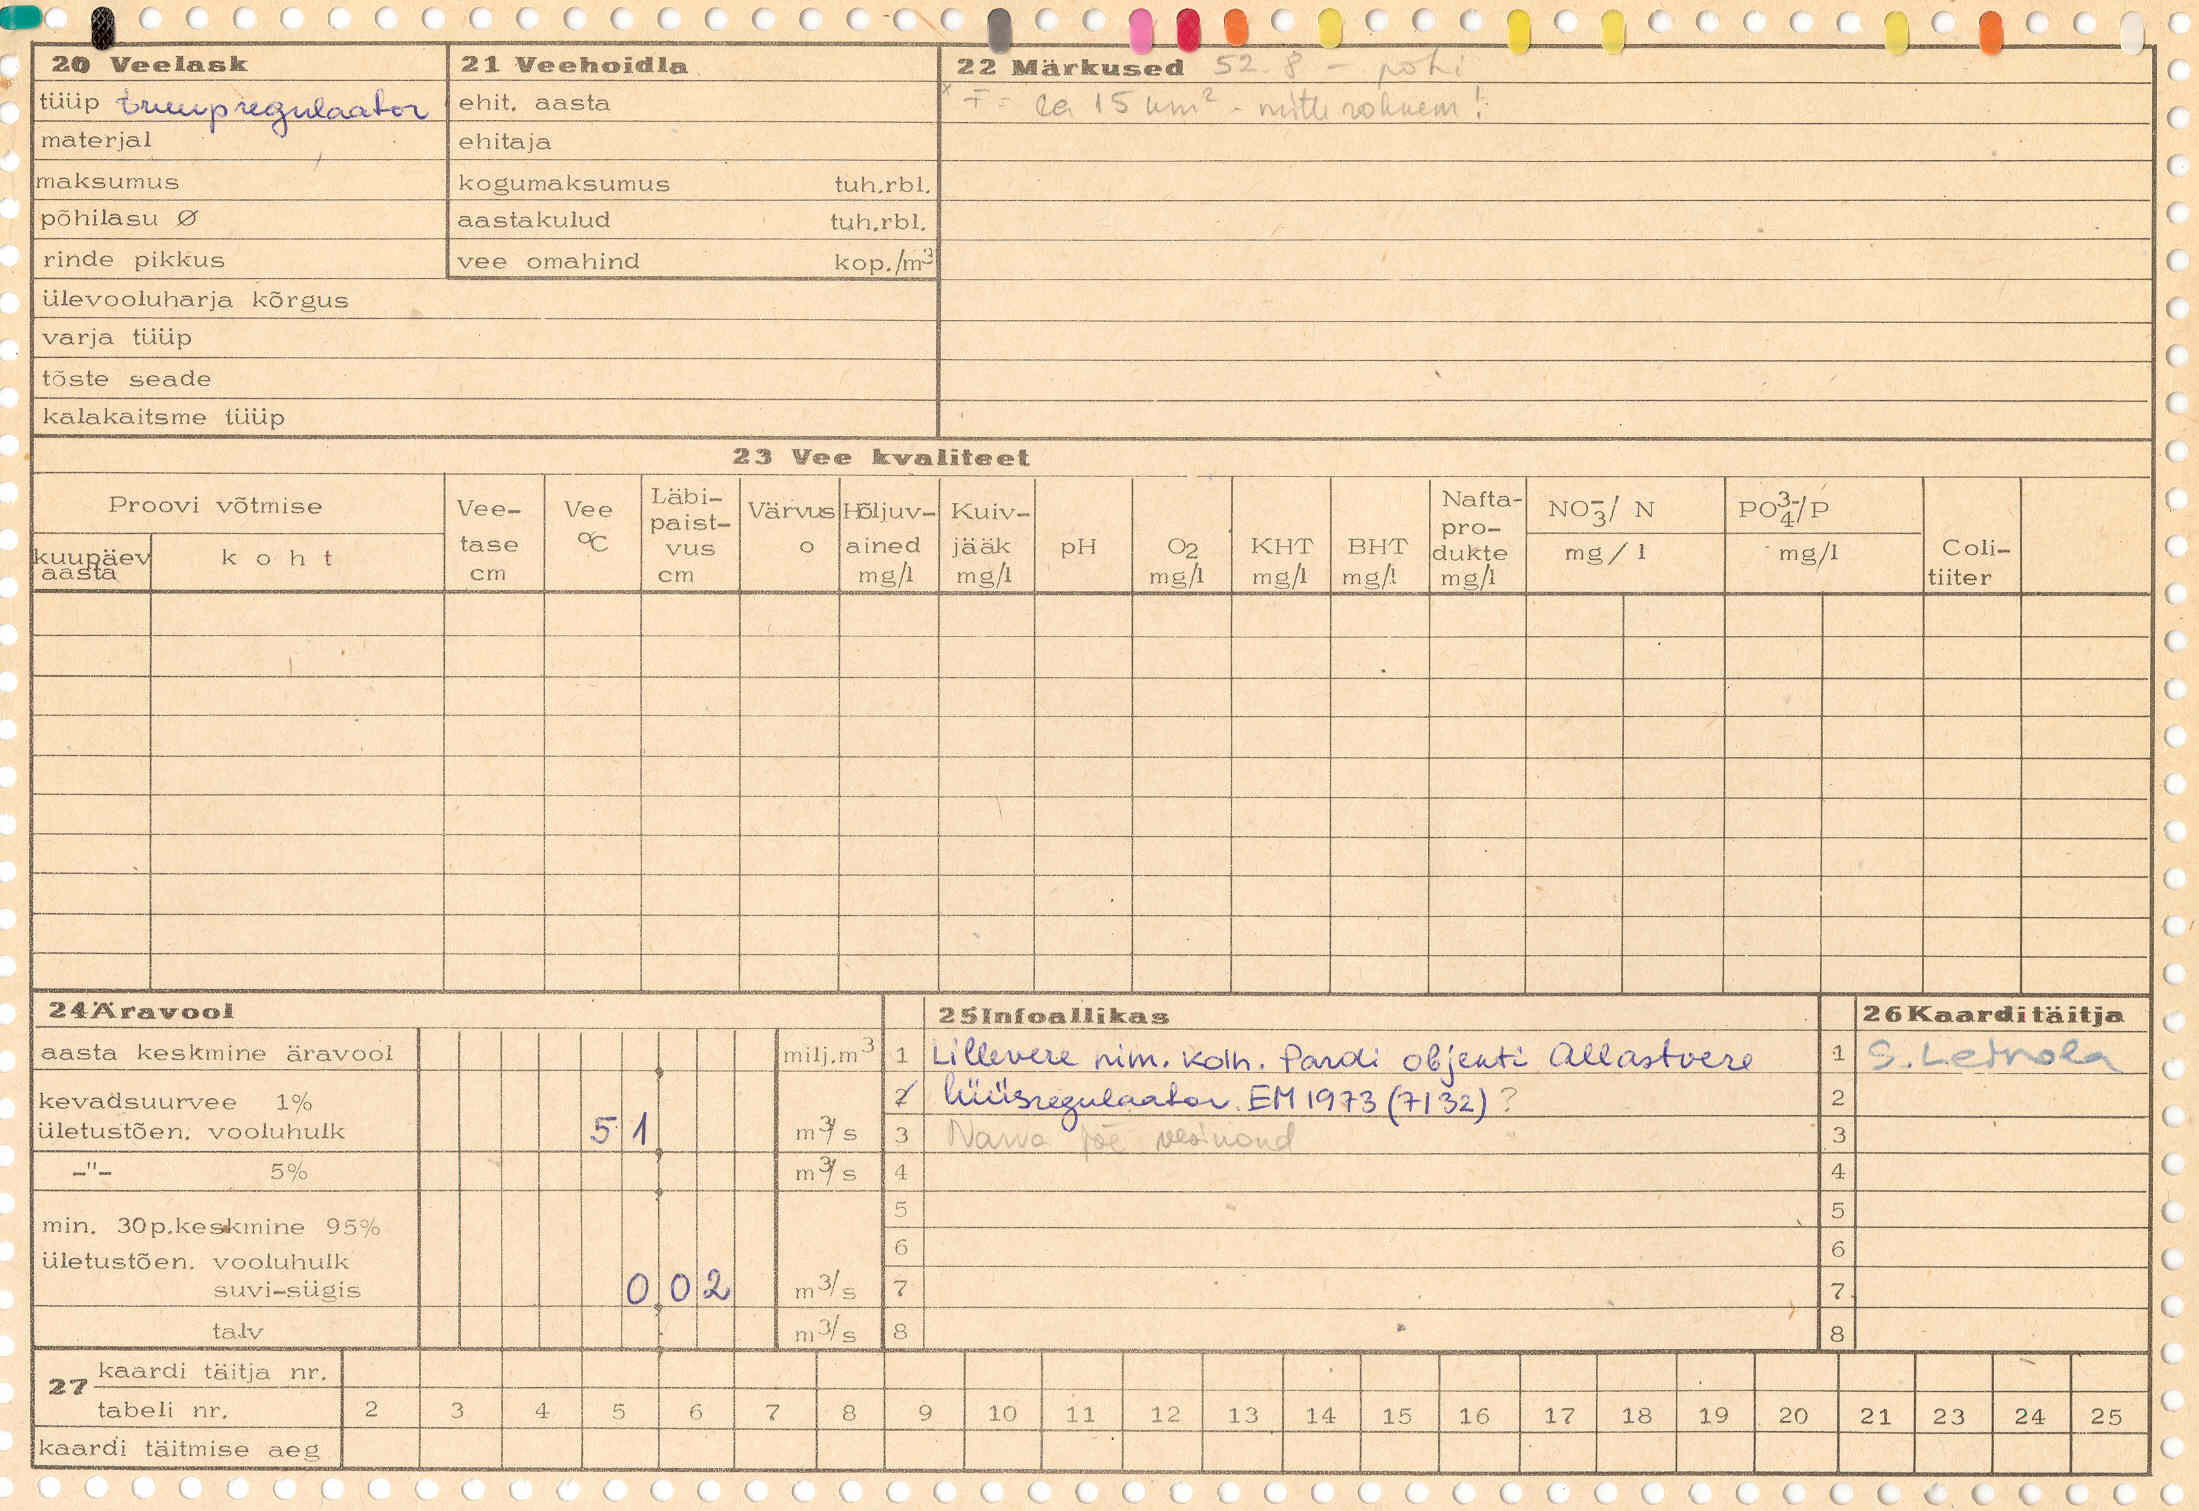 20 Veelask
tüüp truupregulaator
materjal
maksumus
põhilasu Ø
rinde pikkus
ülevooluharja kõrgus
varja tüüp
tõste seade
kalakaitsme tüüp
21 Veehoidla
ehit. aasta
ehitaja
kogumaksumus tuh.rbl.
aastakulud tuh.rbl.
vee omahind kop./m³
22 Märkused 52.8 – põhi
ca 15 km² - mitte rohkem!
23 Vee kvaliteet
Proovi võtmise
kuupäev aasta
koht
Vee-tase cm
Vee °C
Läbi-paist-vus cm
Värvus o
Hõljuv-ained mg/l
Kuiv-jääk mg/l
pH
O2 mg/l
KHT mg/l
BHT mg/l
Nafta-pro-dukte mg/l
NO₃⁻/ N mg/l
PO₄³⁻/P mg/l
Coli-tiiter
24 Äravool
aasta keskmine äravool milj.m³
kevadsuurvee 1%
ületustõen. vooluhulk 5 1 m³/s
-"- 5% m³/s
min. 30p.keskmine 95%
ületustõen. vooluhulk
suvi-sügis 0 0 2 m³/s
talv m³/s
25 Infoallikas
1 Lillevere nim. kolh. Pardi objekti Allastvere
2 lüüsregulaator EM 1973 (7132) ?
3 Narva jõe vesikond
4
5
6
7
8
26 Kaarditäitja
1 S. Leinola
2
3
4
5
6
7
8
27 kaardi täitja nr.
tabeli nr. 2 3 4 5 6 7 8 9 10 11 12 13 14 15 16 17 18 19 20 21 23 24 25
kaardi täitmise aeg